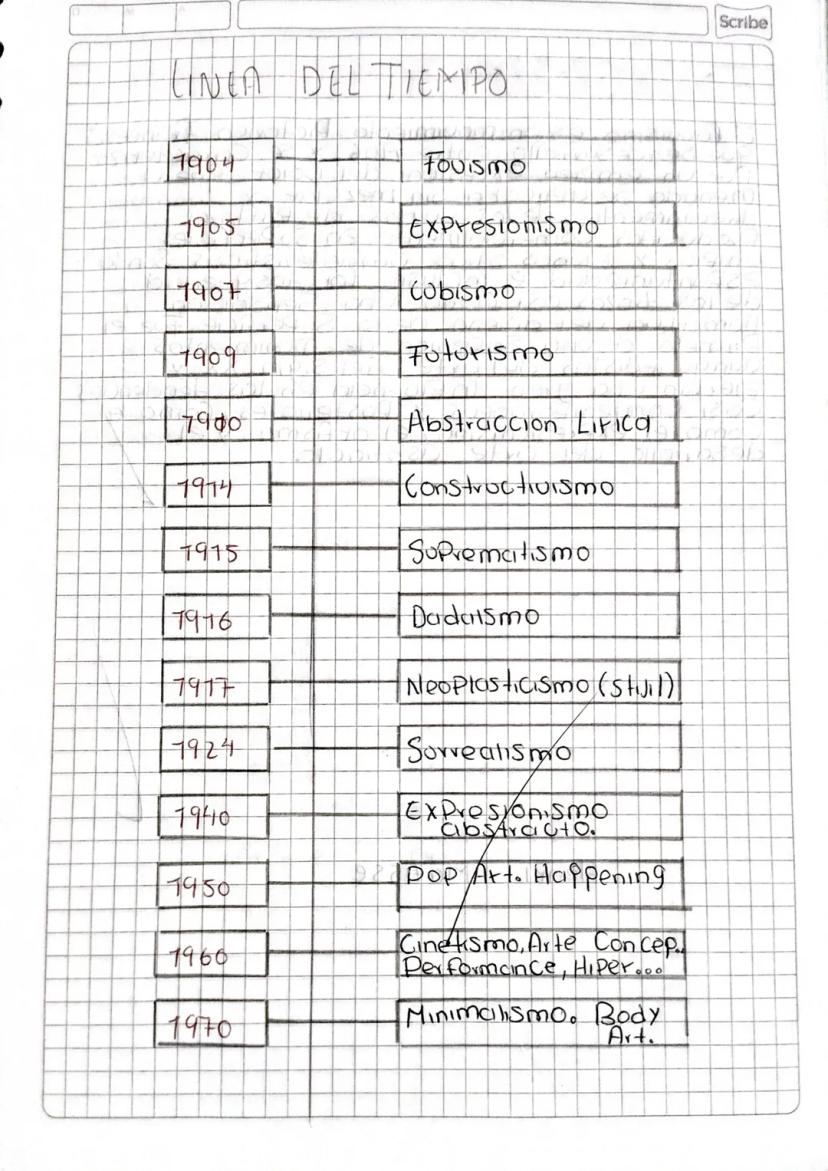 Scribe
LINEA DEL TIEMPO
1904 Fouismo
1905 Expresionismo
1907 Cubismo
1909 Futurismo
1910 Abstraccion Lirica
1914 Constructivismo
1915 Suprematismo
1916 Dadaismo
1917 Neoplasticismo (Stijl)
1924 Surrealismo
1940 Expresionismo
abstracto.
1950 Pop Art. Happening
1960 Cinetismo, Arte Concep..
Performance, Hiper...
1970 Minimalismo. Body
Art.